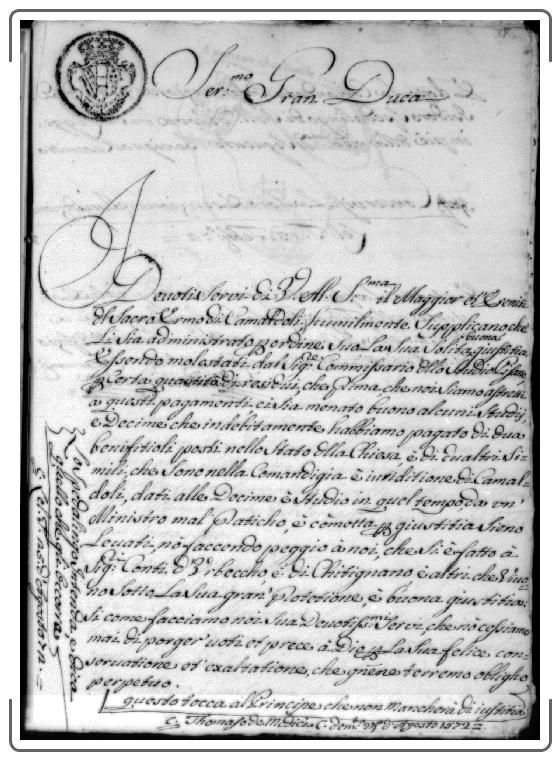 Ser.mo Gran Duca
Devoti Servi di V. Alt. S.ma il Maggior et Eremiti
del Sacro Ermo di Camaldoli, humilmente Supplicano che
li sia administrato p ordine Suo la Sua Solita buona giustitia
Essendo molestati dal Sig.re Commissario dello Studio Pisano
p certa quantità di residui, che Prima che noi Siamo astretti
a questi pagamenti ci sia menato buono alcuni Studij
e Decime che indebitamente habbiamo pagato di dua
benifitioli posti nello Stato dlla Chiesa è di dualtri Si-
mili, che Sono nella Comandigia è iuriditione di Camal-
doli, dati alle Decime è Studio in quel tempo da un'
Ministro mal Paticho, è cometta p giustitia Sieno
Levati, nō faccendo peggio à noi, che Si è fatto à
Sig.i Conti d' è di Chitignano è altri che Vivo
no Sotto La Sua gran' Potetione, è buona giustitia:
Si come facciamo noi Sua Devotiss.mi Servi, che nō cessiamo
mai di porger voti et prece à Dio p La Sua felice con-
servatione et exaltatione, che gnene terremo obligho
perpetuo.
questo tocca al Principe che non Mancherà di iustitia
Thomaso de Medici C. de m.to 25 d'Agosto 1572